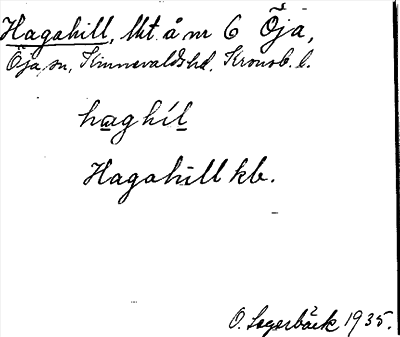 Hagahill, lht å nr 6 Öja,
Öja sn, Kinnevalds hd, Kronob. l.
haghíl
Hagahill kb.
O. Lagerbäck 1935.